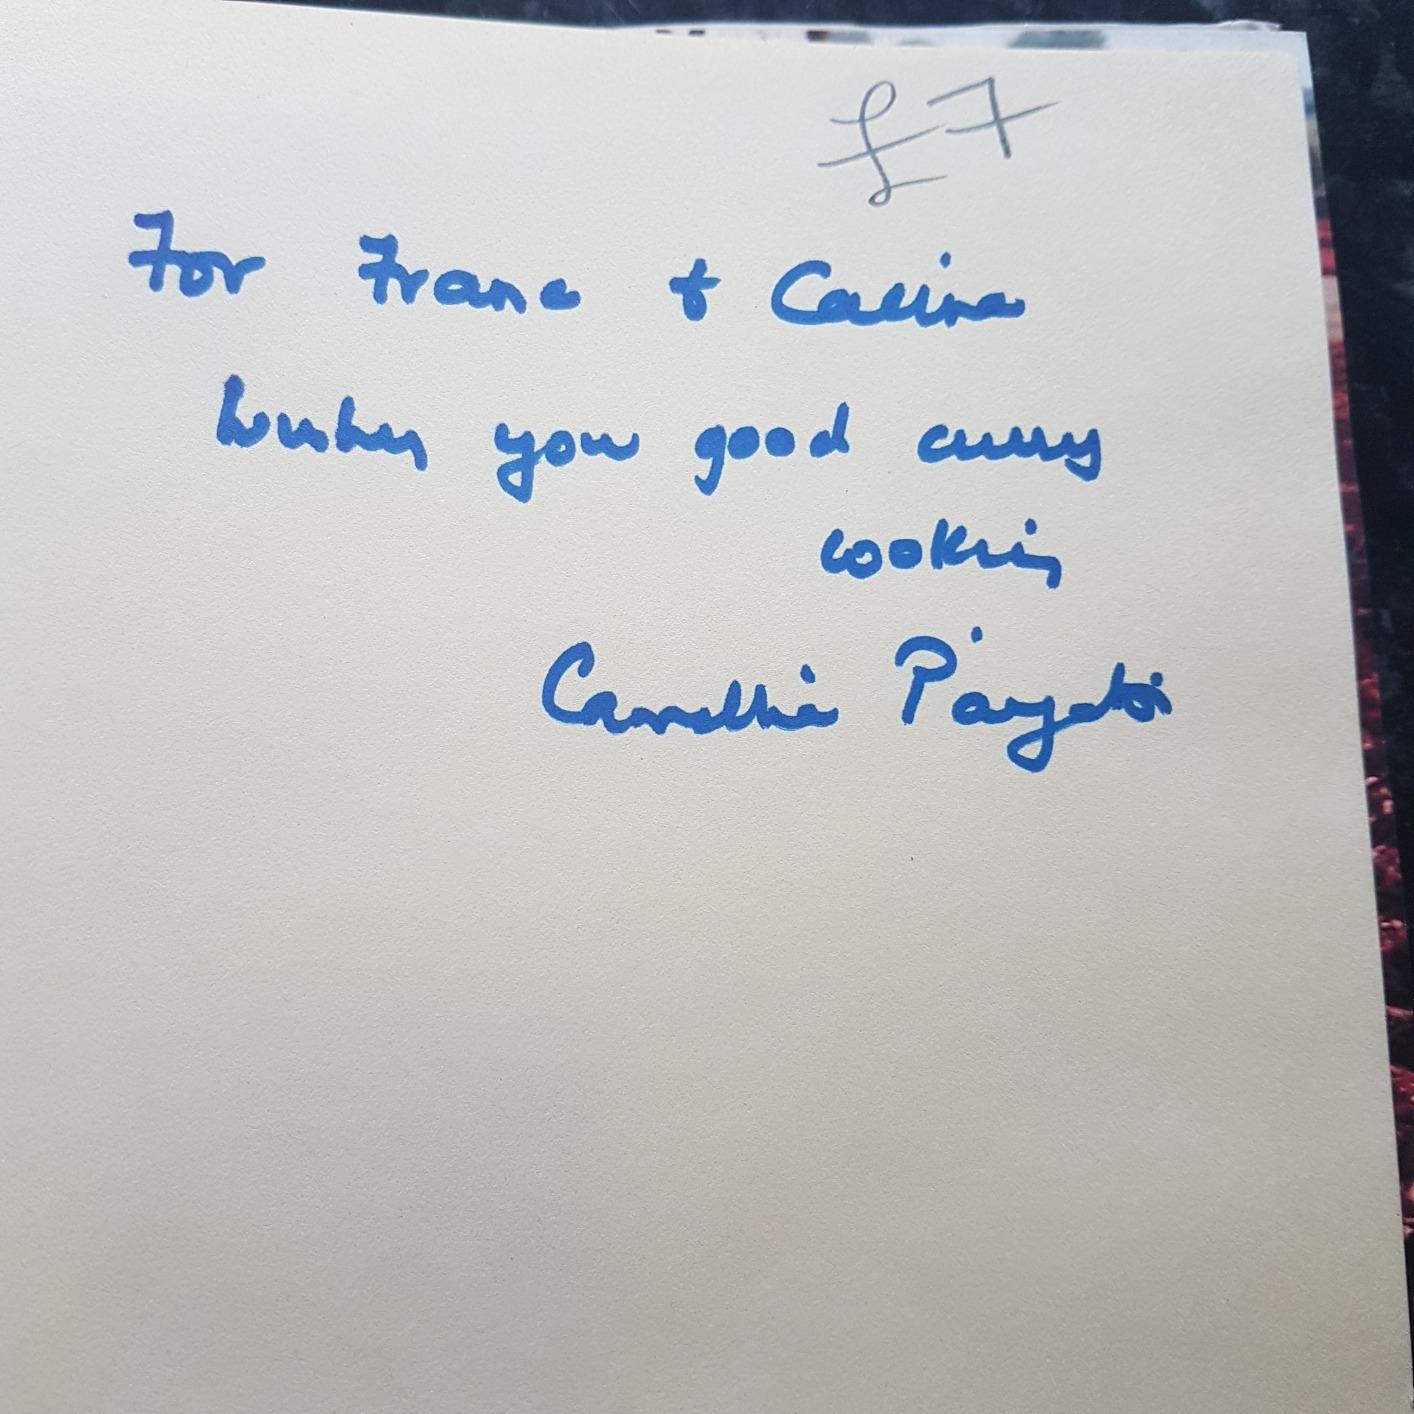 £7
For Franc + Celina
Wishes you good curry
cooking
Camellia Panjabi